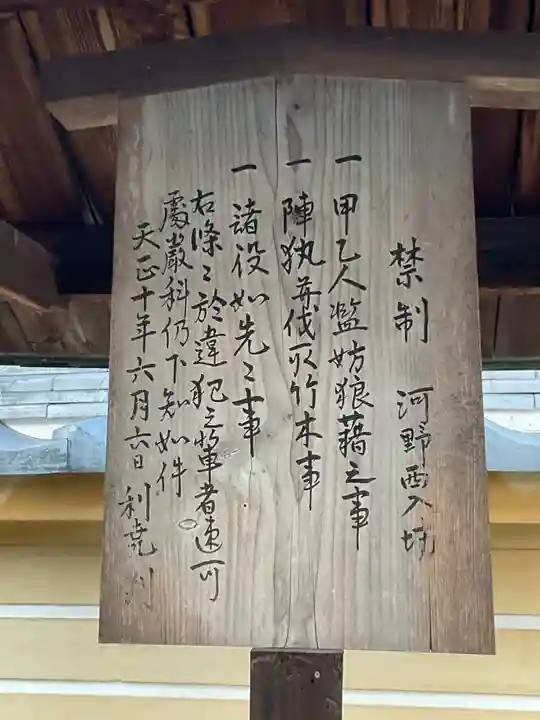 禁制 河野西入坊
一 甲乙人濫妨狼藉之事
一 陣執并伐取竹木事
一 諸役如先々事
右條々於違犯之輩者速可
處嚴科仍下知如件
天正十年六月六日 利堯